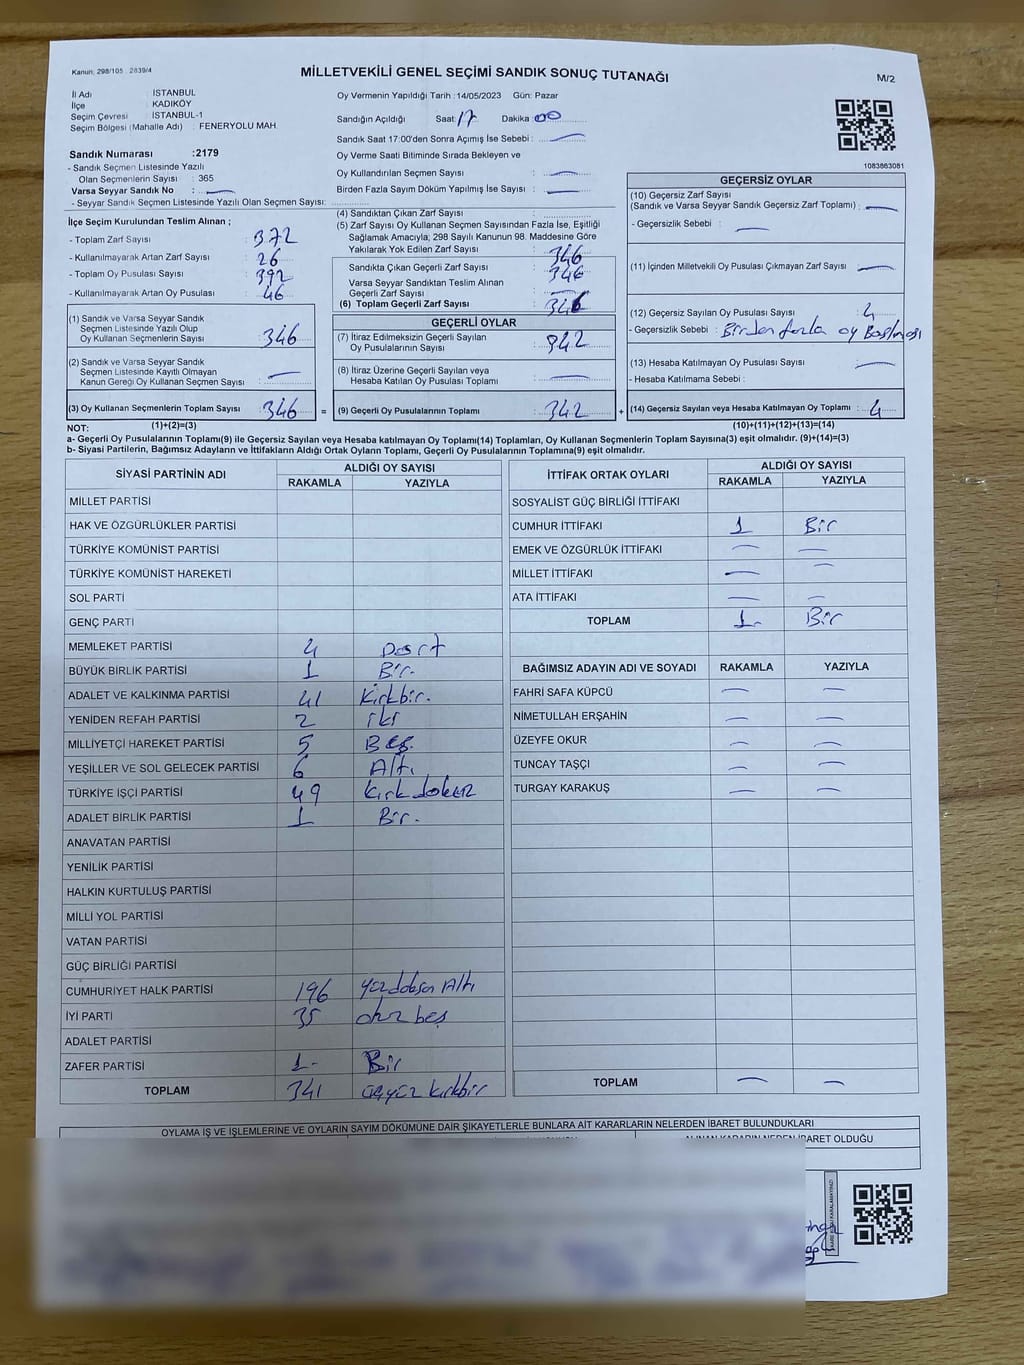 Kanun; 298/105 : 2839/4
MİLLETVEKİLİ GENEL SEÇİMİ SANDIK SONUÇ TUTANAĞI
M/2
İl Adı : İSTANBUL
İlçe : KADIKÖY
Seçim Çevresi : İSTANBUL-1
Seçim Bölgesi (Mahalle Adı) : FENERYOLU MAH.
Oy Vermenin Yapıldığı Tarih :14/05/2023 Gün: Pazar
Sandığın Açıldığı Saat: 17 Dakika : 00
Sandık Saat 17:00'den Sonra Açımış İse Sebebi :
Oy Verme Saati Bitiminde Sırada Bekleyen ve
Oy Kullandırılan Seçmen Sayısı :
Birden Fazla Sayım Döküm Yapılmış İse Sayısı :
1083863081
Sandık Numarası :2179
- Sandık Seçmen Listesinde Yazılı
Olan Seçmenlerin Sayısı : 365
Varsa Seyyar Sandık No :
- Seyyar Sandık Seçmen Listesinde Yazılı Olan Seçmen Sayısı:
İlçe Seçim Kurulundan Teslim Alınan ;
- Toplam Zarf Sayısı : 372
- Kullanılmayarak Artan Zarf Sayısı : 26
- Toplam Oy Pusulası Sayısı : 392
- Kullanılmayarak Artan Oy Pusulası : 46
(1) Sandık ve Varsa Seyyar Sandık
Seçmen Listesinde Yazılı Olup
Oy Kullanan Seçmenlerin Sayısı : 346
(2) Sandık ve Varsa Seyyar Sandık
Seçmen Listesinde Kayıtlı Olmayan
Kanun Gereği Oy Kullanan Seçmen Sayısı :
(3) Oy Kullanan Seçmenlerin Toplam Sayısı : 346 =
(1)+(2)=(3)
(4) Sandıktan Çıkan Zarf Sayısı :
(5) Zarf Sayısı Oy Kullanan Seçmen Sayısından Fazla İse, Eşitliği
Sağlamak Amacıyla; 298 Sayılı Kanunun 98. Maddesine Göre
Yakılarak Yok Edilen Zarf Sayısı : 346
Sandıkta Çıkan Geçerli Zarf Sayısı : 346
Varsa Seyyar Sandıktan Teslim Alınan
Geçerli Zarf Sayısı :
(6) Toplam Geçerli Zarf Sayısı : 346
GEÇERLİ OYLAR
(7) İtiraz Edilmeksizin Geçerli Sayılan
Oy Pusulalarının Sayısı : 342
(8) İtiraz Üzerine Geçerli Sayılan veya
Hesaba Katılan Oy Pusulası Toplamı :
(9) Geçerli Oy Pusulalarının Toplamı : 342 +
GEÇERSİZ OYLAR
(10) Geçersiz Zarf Sayısı
(Sandık ve Varsa Seyyar Sandık Geçersiz Zarf Toplamı) :
- Geçersizlik Sebebi :
(11) İçinden Milletvekili Oy Pusulası Çıkmayan Zarf Sayısı :
(12) Geçersiz Sayılan Oy Pusulası Sayısı : 4
- Geçersizlik Sebebi : Birden fazla oy Basılması
(13) Hesaba Katılmayan Oy Pusulası Sayısı :
- Hesaba Katılmama Sebebi :
(14) Geçersiz Sayılan veya Hesaba Katılmayan Oy Toplamı : 4
(10)+(11)+(12)+(13)=(14)
NOT:
a- Geçerli Oy Pusulalarının Toplamı(9) ile Geçersiz Sayılan veya Hesaba katılmayan Oy Toplamı(14) Toplamları, Oy Kullanan Seçmenlerin Toplam Sayısına(3) eşit olmalıdır. (9)+(14)=(3)
b- Siyasi Partilerin, Bağımsız Adayların ve İttifakların Aldığı Ortak Oyların Toplamı, Geçerli Oy Pusulalarının Toplamına(9) eşit olmalıdır.
SİYASİ PARTİNİN ADI ALDIĞI OY SAYISI
RAKAMLA YAZIYLA
MİLLET PARTİSİ
HAK VE ÖZGÜRLÜKLER PARTİSİ
TÜRKİYE KOMÜNİST PARTİSİ
TÜRKİYE KOMÜNİST HAREKETİ
SOL PARTİ
GENÇ PARTİ
MEMLEKET PARTİSİ 4 Dört
BÜYÜK BİRLİK PARTİSİ 1 Bir.
ADALET VE KALKINMA PARTİSİ 41 Kırkbir.
YENİDEN REFAH PARTİSİ 2 iki
MİLLİYETÇİ HAREKET PARTİSİ 5 Beş.
YEŞİLLER VE SOL GELECEK PARTİSİ 6 Altı
TÜRKİYE İŞÇİ PARTİSİ 49 Kırkdokuz
ADALET BİRLİK PARTİSİ 1 Bir.
ANAVATAN PARTİSİ
YENİLİK PARTİSİ
HALKIN KURTULUŞ PARTİSİ
MİLLİ YOL PARTİSİ
VATAN PARTİSİ
GÜÇ BİRLİĞİ PARTİSİ
CUMHURİYET HALK PARTİSİ 196 Yüzdoksan Altı
İYİ PARTİ 35 otuz beş
ADALET PARTİSİ
ZAFER PARTİSİ 1- Bir
TOPLAM 341 üçyüz kırkbir
İTTİFAK ORTAK OYLARI ALDIĞI OY SAYISI
RAKAMLA YAZIYLA
SOSYALİST GÜÇ BİRLİĞİ İTTİFAKI
CUMHUR İTTİFAKI 1 Bir
EMEK VE ÖZGÜRLÜK İTTİFAKI
MİLLET İTTİFAKI
ATA İTTİFAKI
TOPLAM 1- Bir
BAĞIMSIZ ADAYIN ADI VE SOYADI RAKAMLA YAZIYLA
FAHRİ SAFA KÜPCÜ
NİMETULLAH ERŞAHİN
ÜZEYFE OKUR
TUNCAY TAŞÇI
TURGAY KARAKUŞ
TOPLAM
OYLAMA İŞ VE İŞLEMLERİNE VE OYLARIN SAYIM DÖKÜMÜNE DAİR ŞİKAYETLERLE BUNLARA AİT KARARLARIN NELERDEN İBARET BULUNDUKLARI
ALINAN KARARIN NEDEN İBARET OLDUĞU